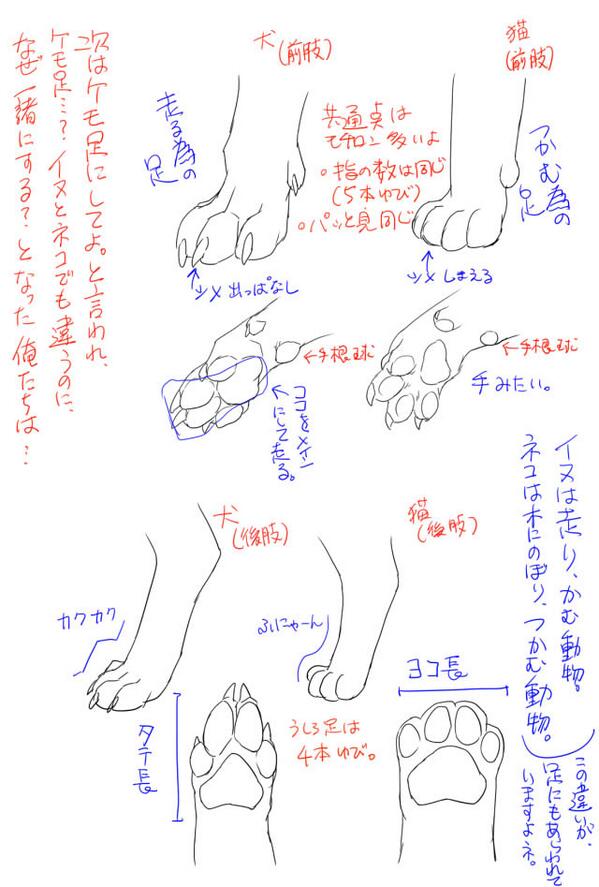 次はケモ足にしてよ。と言われ、
ケモ足…？イヌとネコでも違うのに、
なぜ一緒にする？となった俺たちは…
犬
(前肢)
猫
(前肢)
走る為の
足
共通点は
モチロン多いよ
・指の数は同じ
(5本ゆび)
・パッと見同じ
つかむ為の
足
ツメ出っぱなし
ツメしまえる
←手根球
←手根球
手みたい。
ココをメイン
にして走る。
イヌは走り、かむ動物。
ネコは木にのぼり、つかむ動物。
この違いが、
足にもあらわれて
いますよネ。
犬
(後肢)
猫
(後肢)
カクカク
ふにゃーん
ヨコ長
タテ長
うしろ足は
4本ゆび。